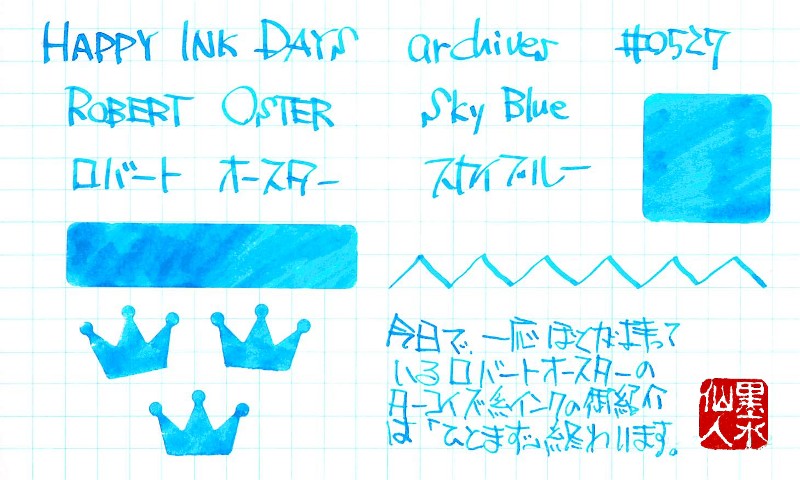 HAPPY INK DAYS archives #0527
ROBERT OSTER Sky Blue
ロバート オースター スカイブルー
今日で、一応ぼくが持って
いるロバートオースターの
ターコイズ系インクの御紹介
は「ひとまず」終わります。
墨水
仙人